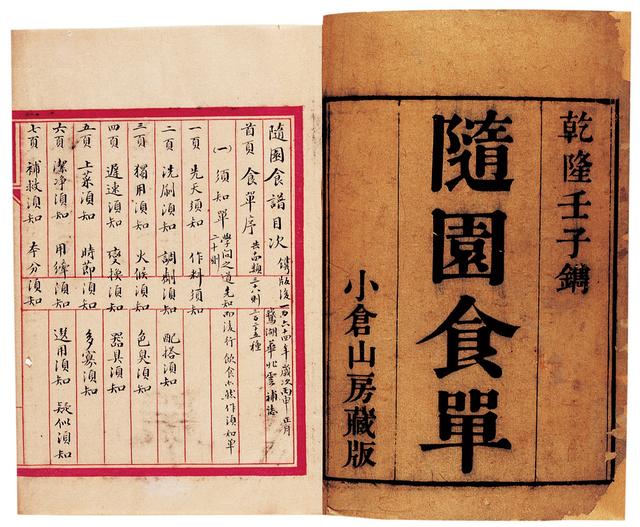 乾隆壬子鐫
隨園食單
小倉山房藏版
隨園食譜目次 鐫版後一百六十四年歲次丙申正月
鵞湖華北雲補誌
首頁 食單序
(一) 須知單 學問之道先知而後行飲食亦然作須知單
二十則
一頁 先天須知 作料須知
二頁 洗刷須知 調劑須知 配搭須知
三頁 獨用須知 火候須知 色臭須知
四頁 遲速須知 變換須知 器具須知
五頁 上菜須知 時節須知 多寡須知
六頁 潔净須知 用縴須知 選用須知 疑似須知
七頁 補救須知 本分須知